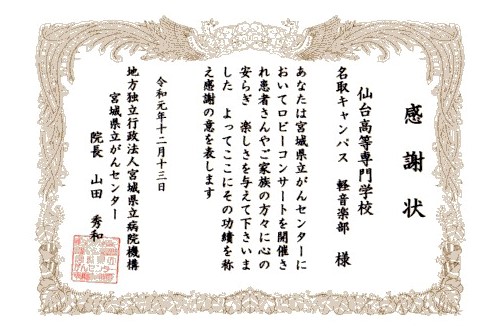 感謝状
仙台高等専門学校
名取キャンパス 軽音楽部 様
あなたは宮城県立がんセンターに
おいてロビーコンサートを開催さ
れ患者さんやご家族の方々に心の
安らぎ 楽しさを与えて下さいま
した よってここにその功績を称
え感謝の意を表します
令和元年十二月十三日
地方独立行政法人宮城県立病院機構
宮城県立がんセンター
院長 山田 秀和